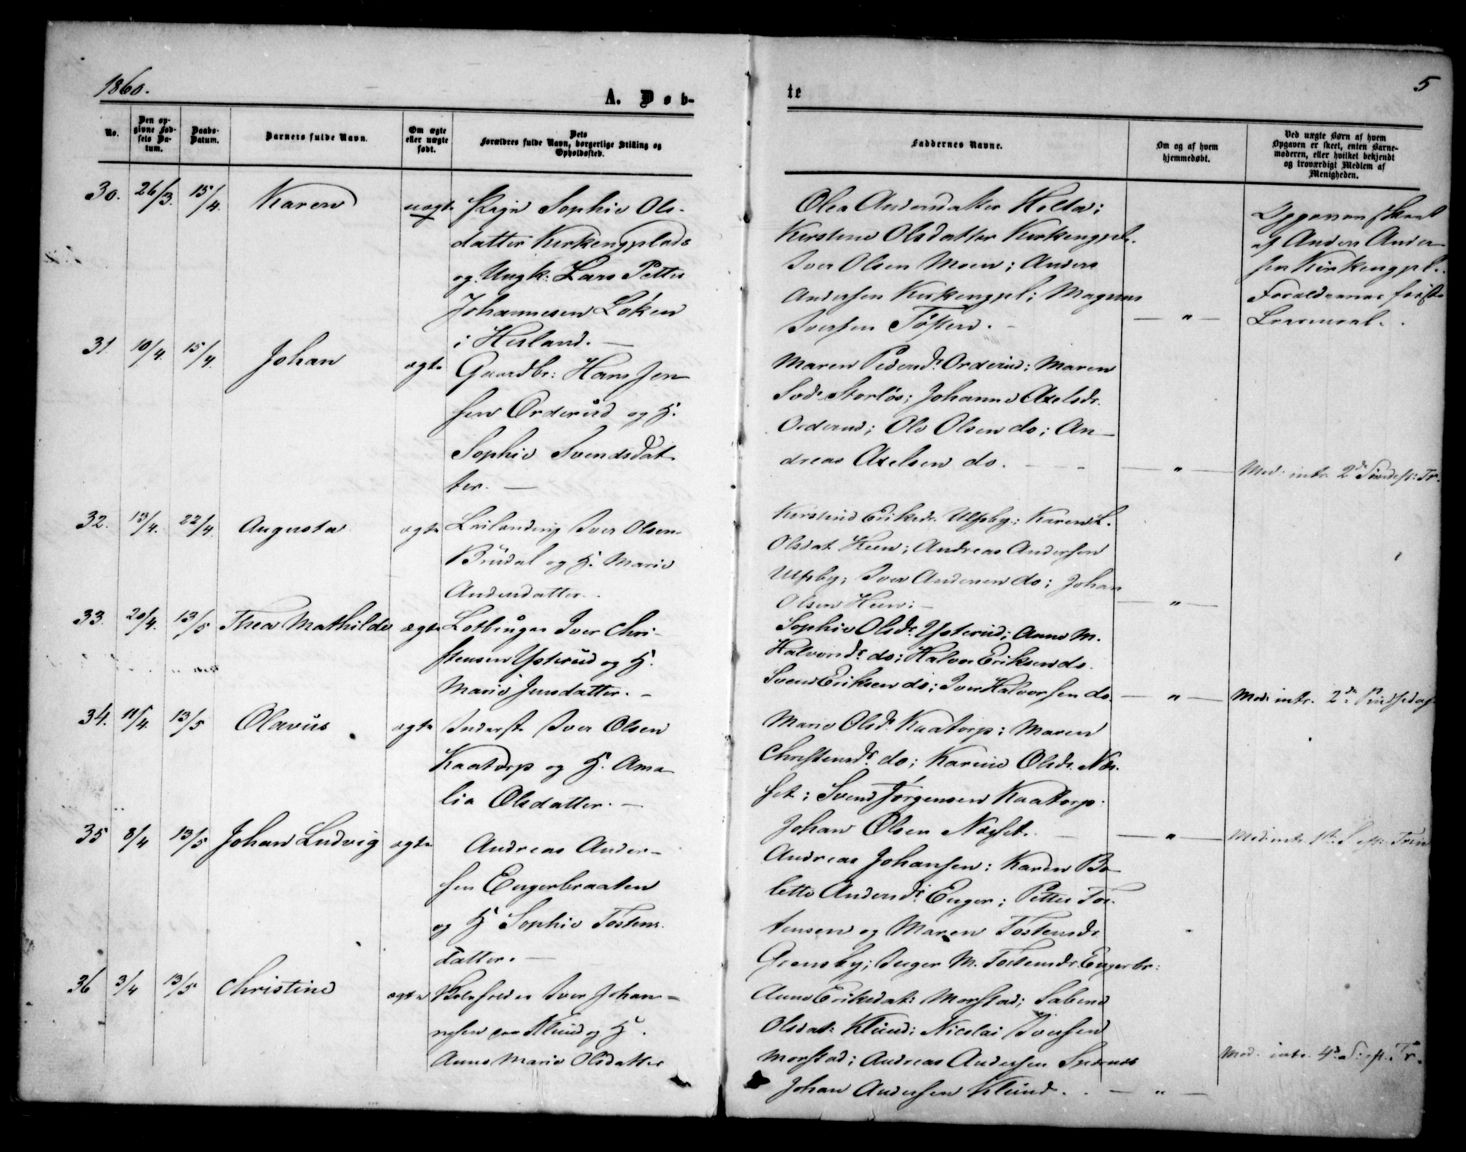 1860.
A. Døb-
te
5
No.
Den op-
givne Fød-
sels Da-
tum.
Daabs-
Datum.
Barnets fulde Navn.
Om ægte
eller uægte
født.
Dets
Forældres fulde Navn, borgerlige Stilling og
Opholdssted.
Faddernes Navne.
Om og af hvem
hjemmedøbt.
Ved uægte Børn af hvem
Opgaven er skeet, enten Barne-
moderen, eller hvilket bekjendt
og troværdigt Medlem af
Menigheden.
30. 26/3. 15/4. Karen uægte Pige Sophie Ols-
datter Kirkengplads
og Ungk: Lars Petter
Johannesen Løken
i Høland. —
Olea Andersdatter Helta;
Kirstine Olsdatter Kirkengpl.
Iver Olsen Moen; Anders
Andersen Kirkengpl; Magnus
Iversen — " —
Opgaven skeet
af Anders Ander-
sen Kirkengpl.
Forældrenes første
Leiermaal.
31 10/4. 15/4. Johan ægte Gaardbr: Hans Jen-
sen Orderud og H.
Sophie Svendsdat-
ter. —
Maren Orderud; Maren
Storløs; Johanne Axelsdr.
Orderud; Ole Olsen do; An-
dreas Axelsen do. — " — Mod. intr. 2d
32. 13/4. 22/4. Augusta ægte Iver Olsen
og H. Marie
Andersdatter.
Kirstine Eriksdr. Ulfsby; Karen L.
Olsdat. Heen; Andreas Andersen
Ulfsby; Iver Andersen do; Johan
Olsen Heen; — " —
33. 20/4. 13/5 Thea Mathilde ægte Letbruger Iver Chri-
stensen Ysterud og H.
Marie Jensdatter. —
Sophie Olsdr. Ysterud; Anne M.
Halvorsdr. do; Halvor Eriksen do.
Svend Eriksen do; Iver Halvorsen do. — " — Mod. intr. 2d. Pindsedag
34. 11/4 13/5 Olavus ægte Inderst Iver Olsen
Kaatorp og H. Ama-
lia Olsdatter. —
Marie Olsdr. Kaatorp; Maren
Christensdr. do; Karine Olsdr. Næs-
set; Svend Jørgensen Kaatorp.
Johan Olsen Næsset. — " — Mod. intr. 1st. S. e. Trin
35 8/4 13/5 Johan Ludvig ægte Andreas Ander-
sen Engerbraaten
og H Sophie Tostens-
datter. —
Andreas Johansen; Karen Bo-
lette Andersdr. Enger; Petter Tos-
tensen og Maren Tostensdr.
Grensby; Inger M. Tostensdr. Engerbr:
36 3/4 13/5 Christine ægte Iver Johan-
nesen Klund og H.
Anne Marie Olsdatter
Anne Eriksdat: Morstad; Sabine
Olsdat. Klund; Nicolai Iversen
Morstad; Andreas Andersen
Johan Andersen Klund. — " — Mod. intr. 4d S. e. Tr.